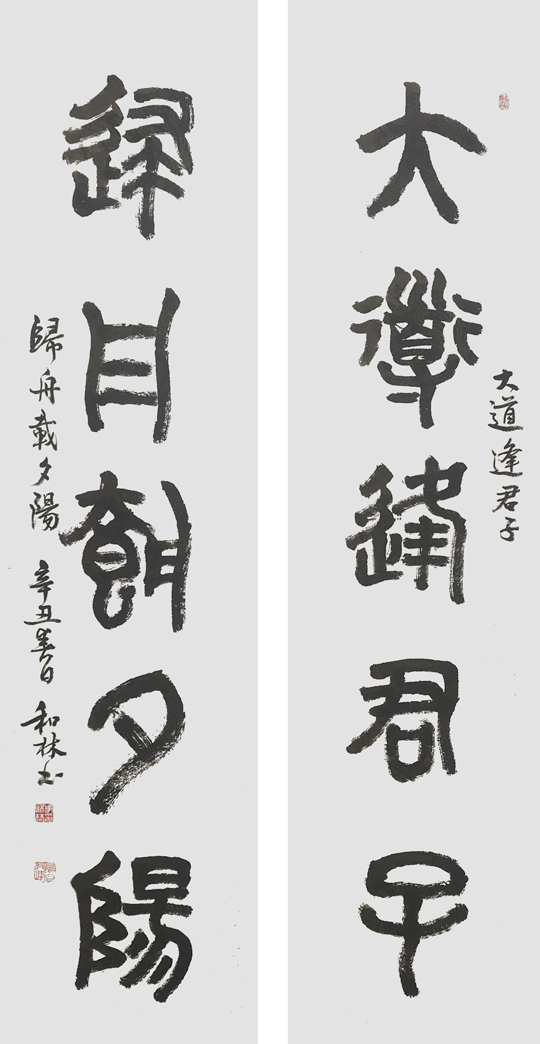 大道逢君子
大道逢君子
歸舟載夕陽
歸舟載夕陽 辛丑春日 和林书